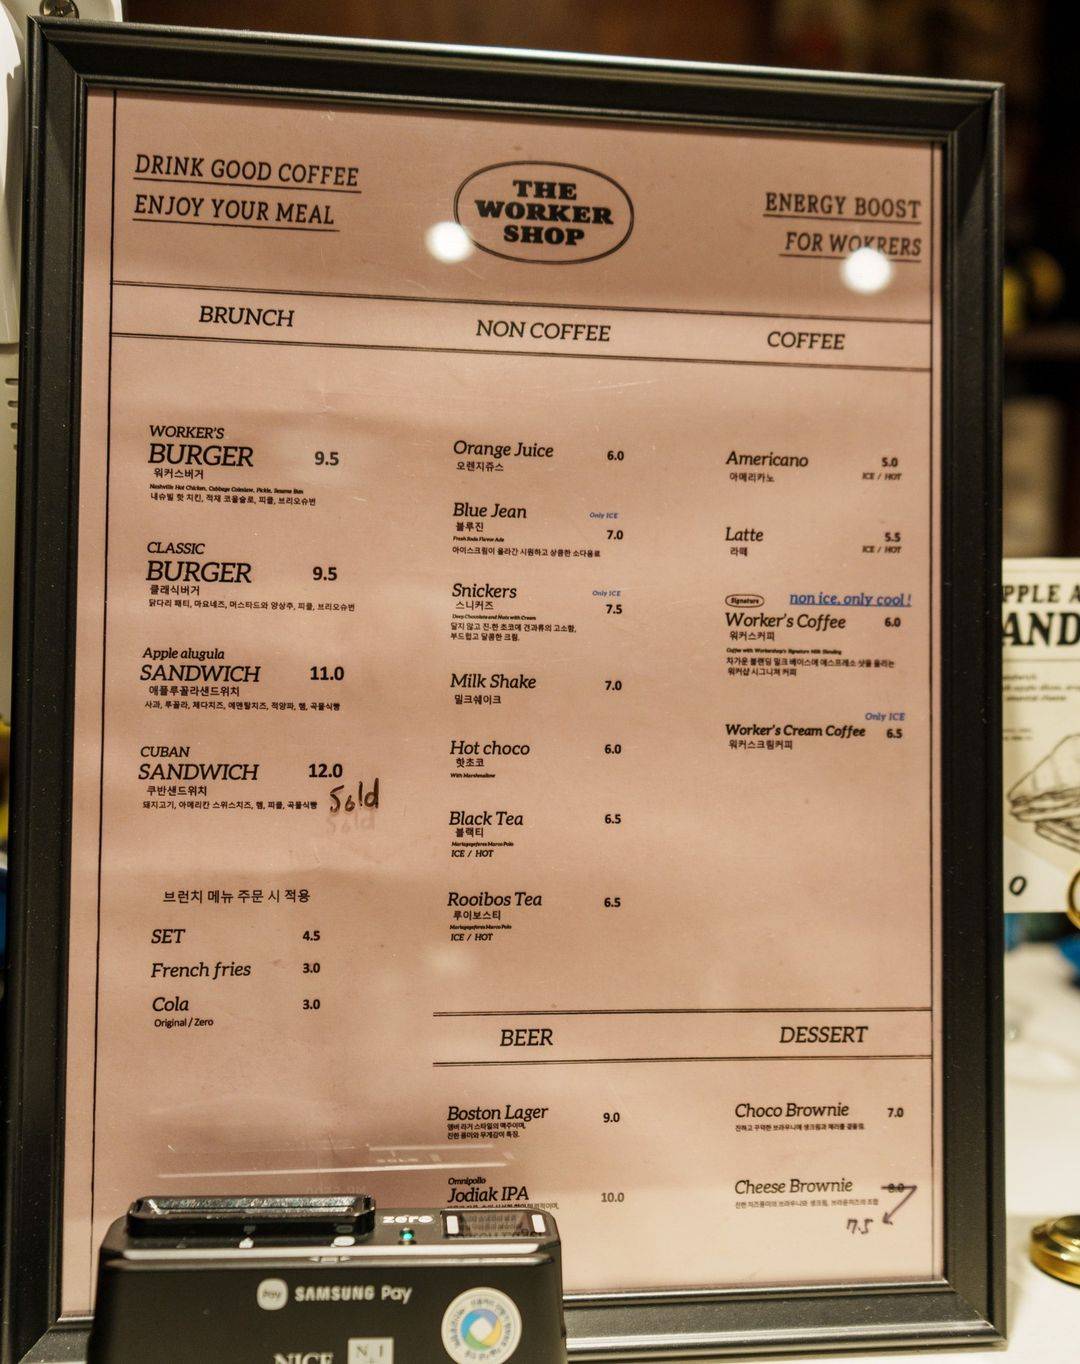 DRINK GOOD COFFEE
ENJOY YOUR MEAL
THE
WORKER
SHOP
ENERGY BOOST
FOR WOKRERS
BRUNCH
WORKER'S
BURGER 9.5
워커스버거
Nashville Hot Chicken, Cabbage Coleslaw, Pickle, Sesame Bun
내슈빌 핫 치킨, 적채 코울슬로, 피클, 브리오슈번
CLASSIC
BURGER 9.5
클래식버거
닭다리 패티, 마요네즈, 머스타드와 양상추, 피클, 브리오슈번
Apple alugula
SANDWICH 11.0
애플루꼴라샌드위치
사과, 루꼴라, 체다치즈, 에멘탈치즈, 적양파, 햄, 곡물식빵
CUBAN
SANDWICH 12.0
쿠반샌드위치
돼지고기, 아메리칸 스위스치즈, 햄, 피클, 곡물식빵
Sold
브런치 메뉴 주문 시 적용
SET 4.5
French fries 3.0
Cola 3.0
Original / Zero
NON COFFEE
Orange Juice 6.0
오렌지쥬스
Blue Jean Only ICE
블루진 7.0
Fresh Soda Flavor Ade
아이스크림이 올라간 시원하고 상큼한 소다음료
Snickers Only ICE
스니커즈 7.5
Deep Chocolate and Nuts with Cream
달지 않고 진-한 초코에 견과류의 고소함,
부드럽고 달콤한 크림.
Milk Shake 7.0
밀크쉐이크
Hot choco 6.0
핫초코
With Marshmallow
Black Tea 6.5
블랙티
ICE / HOT
Rooibos Tea 6.5
루이보스티
ICE / HOT
COFFEE
Americano 5.0
아메리카노 ICE / HOT
Latte 5.5
라떼 ICE / HOT
Signature non ice, only cool!
Worker's Coffee 6.0
워커스커피
Coffee with Workershop's Signature Milk Blending
차가운 블랜딩 밀크 베이스에 에스프레소 샷을 올리는
워커샵 시그니쳐 커피
Only ICE
Worker's Cream Coffee 6.5
워커스크림커피
BEER
Boston Lager 9.0
앰버 라거 스타일의 맥주이며,
진한 풍미와 무게감이 특징.
Omnipollo
Jodiak IPA 10.0
DESSERT
Choco Brownie 7.0
진하고 꾸덕한 브라우니에 생크림과 체리를 곁들임.
Cheese Brownie 8.0
진한 치즈풍미와 생크림, 브라운치즈의 조합
7.5
zero
Pay SAMSUNG Pay
NICE
PPLE A
AND